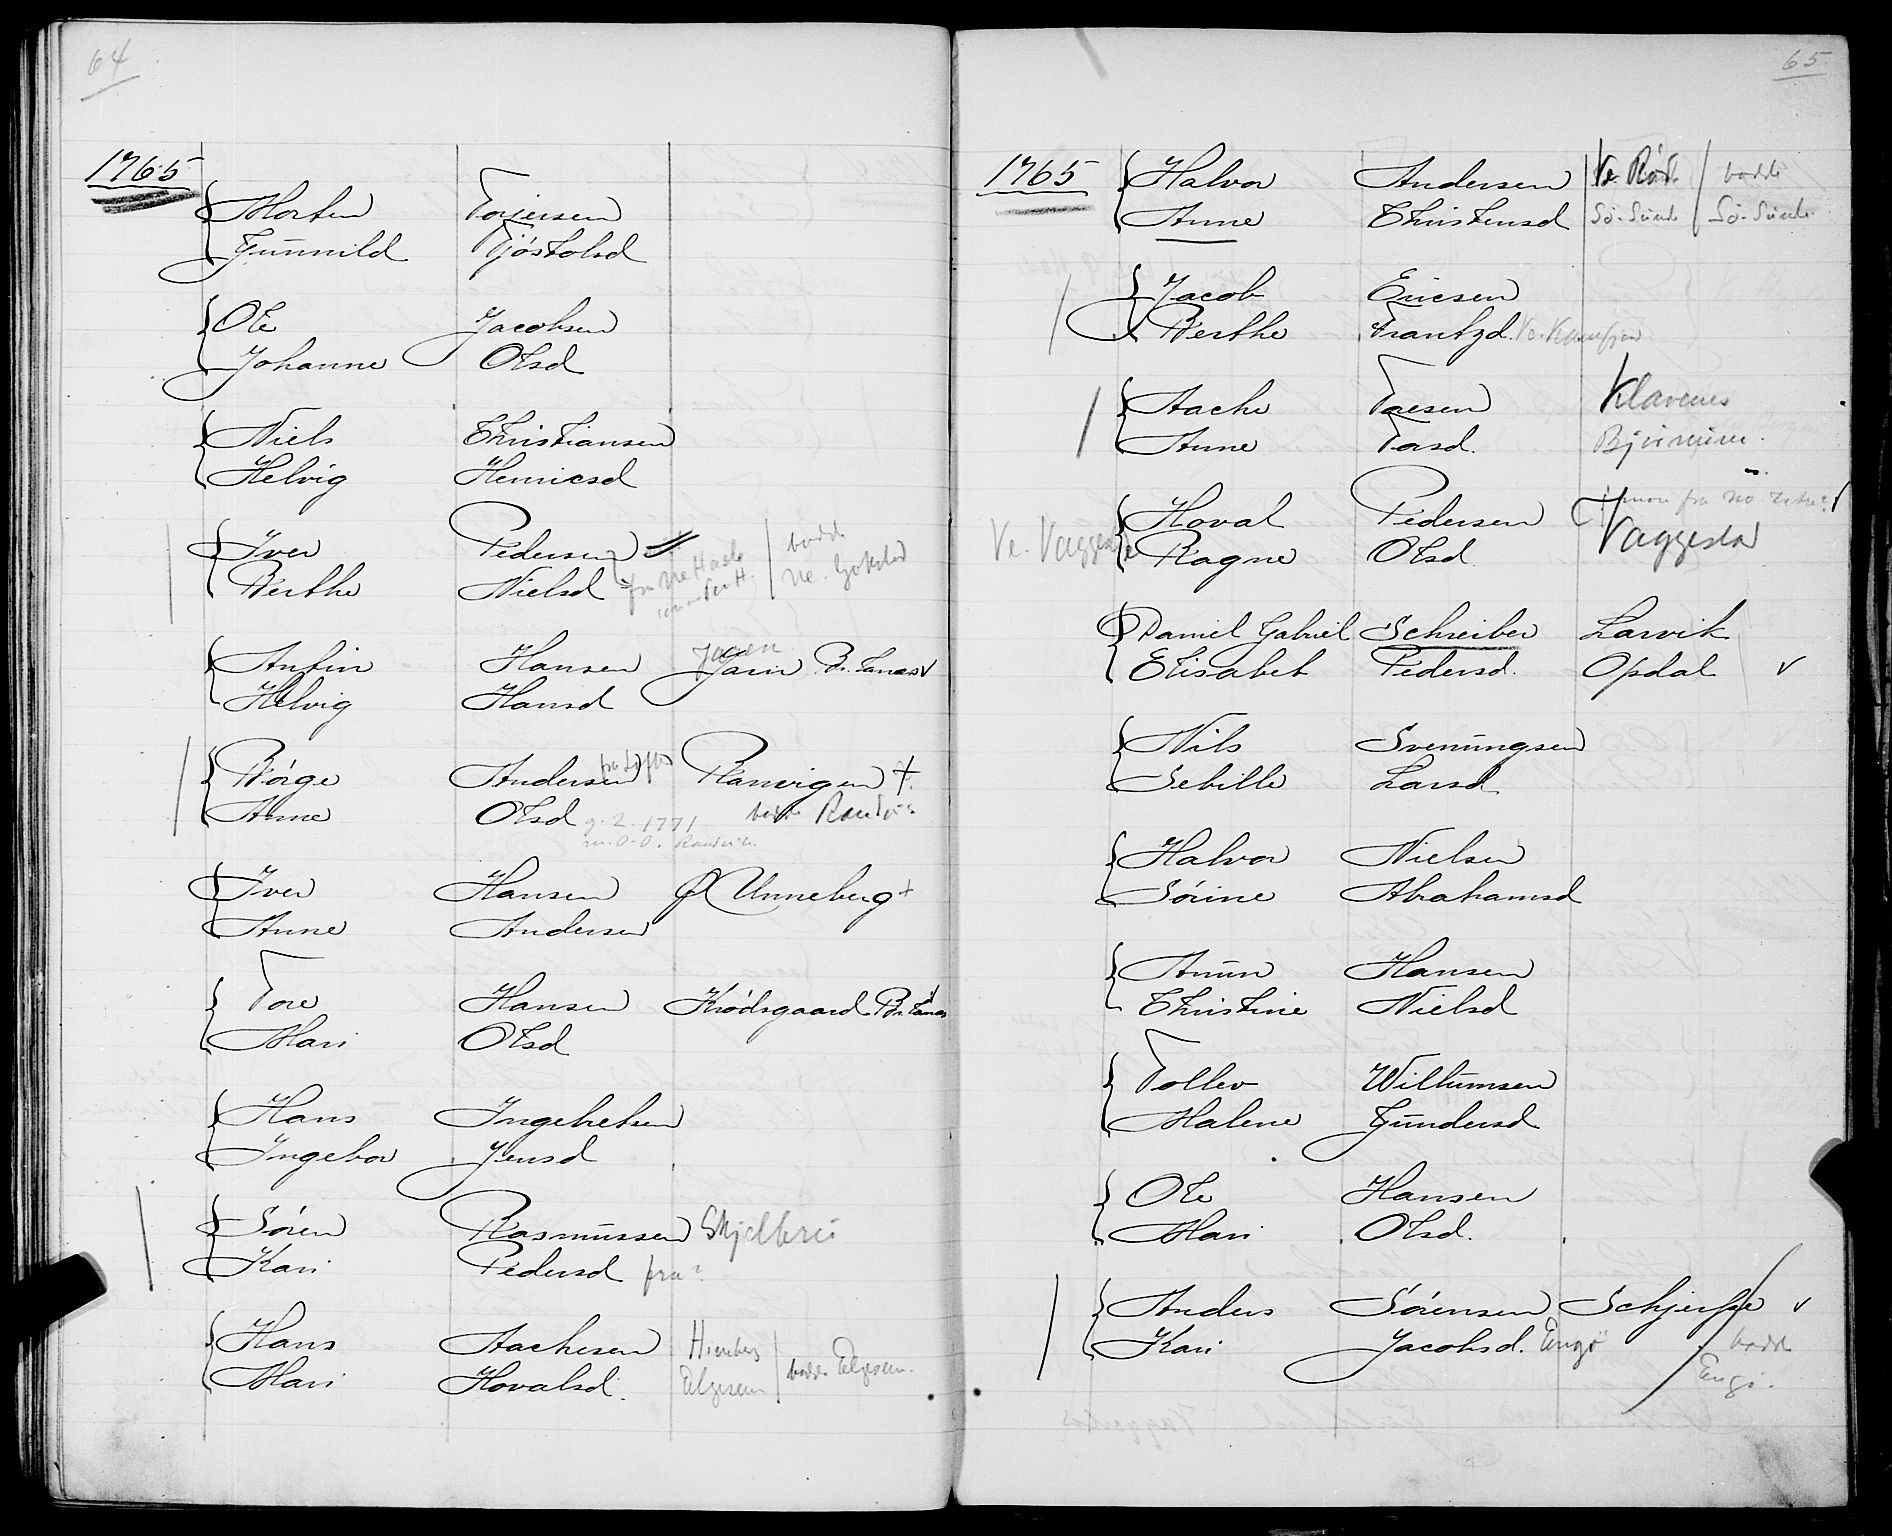 64
1765
Morten Torjersen
Gunnild Tjøstolsd
Ole Jacobsen
Johanne Olsd
Niels Christiansen
Helvig Henricsd
Iver Pedersen bodde
Berthe Nielsd
Jahren
Anfin Hansen Jarin
Helvig Hansd
Børge Andersen Ranvigen +
Anne Olsd g. 2. 1771 bodde
Iver Hansen Unneberg +
Anne Andersen
Tore Hansen Krødsgaard
Mari Olsd
Hans Ingebretsen
Ingebor Jensd
Søren Rasmussen Skjelbrei
Kari Pedersd fra?
Hans Aachesen
Mari Hovalsd Elgesem bodde Elgesem
65
1765
Halvor Andersen Ve. Rød bodde
Anne Christensd
Jacob Ericsen
Berthe Frantzd.
Aache Toresen Klavenes
Anne Torsd.
Hoval Pedersen
Ragne Olsd Vaggestad
Daniel Gabriel Schreiber Larvik
Elisabet Pedersd. Opdal v
Nils Svenungsen
Sebille Larsd
Halvor Nielsen
Sørine Abrahamsd
Anun Hansen
Christine Nielsd
Tollev Willumsen
Malene Gundersd
Ole Hansen
Mari Olsd.
Anders Sørensen Schjerfve v
Kari Jacobsd. Engø bodde
Engø.